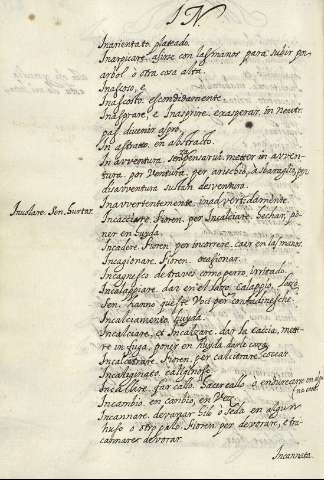 IN
Inarientato. plateado.
Inarpicare. asirse con las manos para subir por
arbol ò otra cosa alta.
Inascoso, e
Inascosto. escondidamente.
Inasprare, e Inasprire. exasperar. in neutr.
pas. divenir aspro.
In astratto. en abstracto.
In avventura. sen. pensarvi. metter in avven-
tura. por Ventura, per arischio, a sbaraglio, per
disavventura
Inavvertentemente. inadvertidamente.
Inuolare. Sen. hurtar.
Incacciare. Fioren. per Incalciare. hechar, po-
ner en huyda.
Incadere. Fioren. por incorrere. caer en las manos.
Incagionare. Fioren. ocasionar.
Incagnesco. de traves como perro, irritado.
Incalappiare. dar en el lazo, calappio, lazo
Sen. hanno queste
Incalciamento. huyda.
Incalciare, et Incalzare. dar la caccia, mette-
re in fuga, poner en huyda, darle caza.
Incalcitrare. Fioren. per calcitrare. cocear.
Incaliginato. caliginoso.
Incallire. far callo. hacer callo, o endurecerse en algo
Incambio. en cambio, en Vez.
Incannare. devanar hilo ò seda en algun
huso ò otro palo. Fioren. per devorare, e tra-
cannare. devorar.
Incannata.